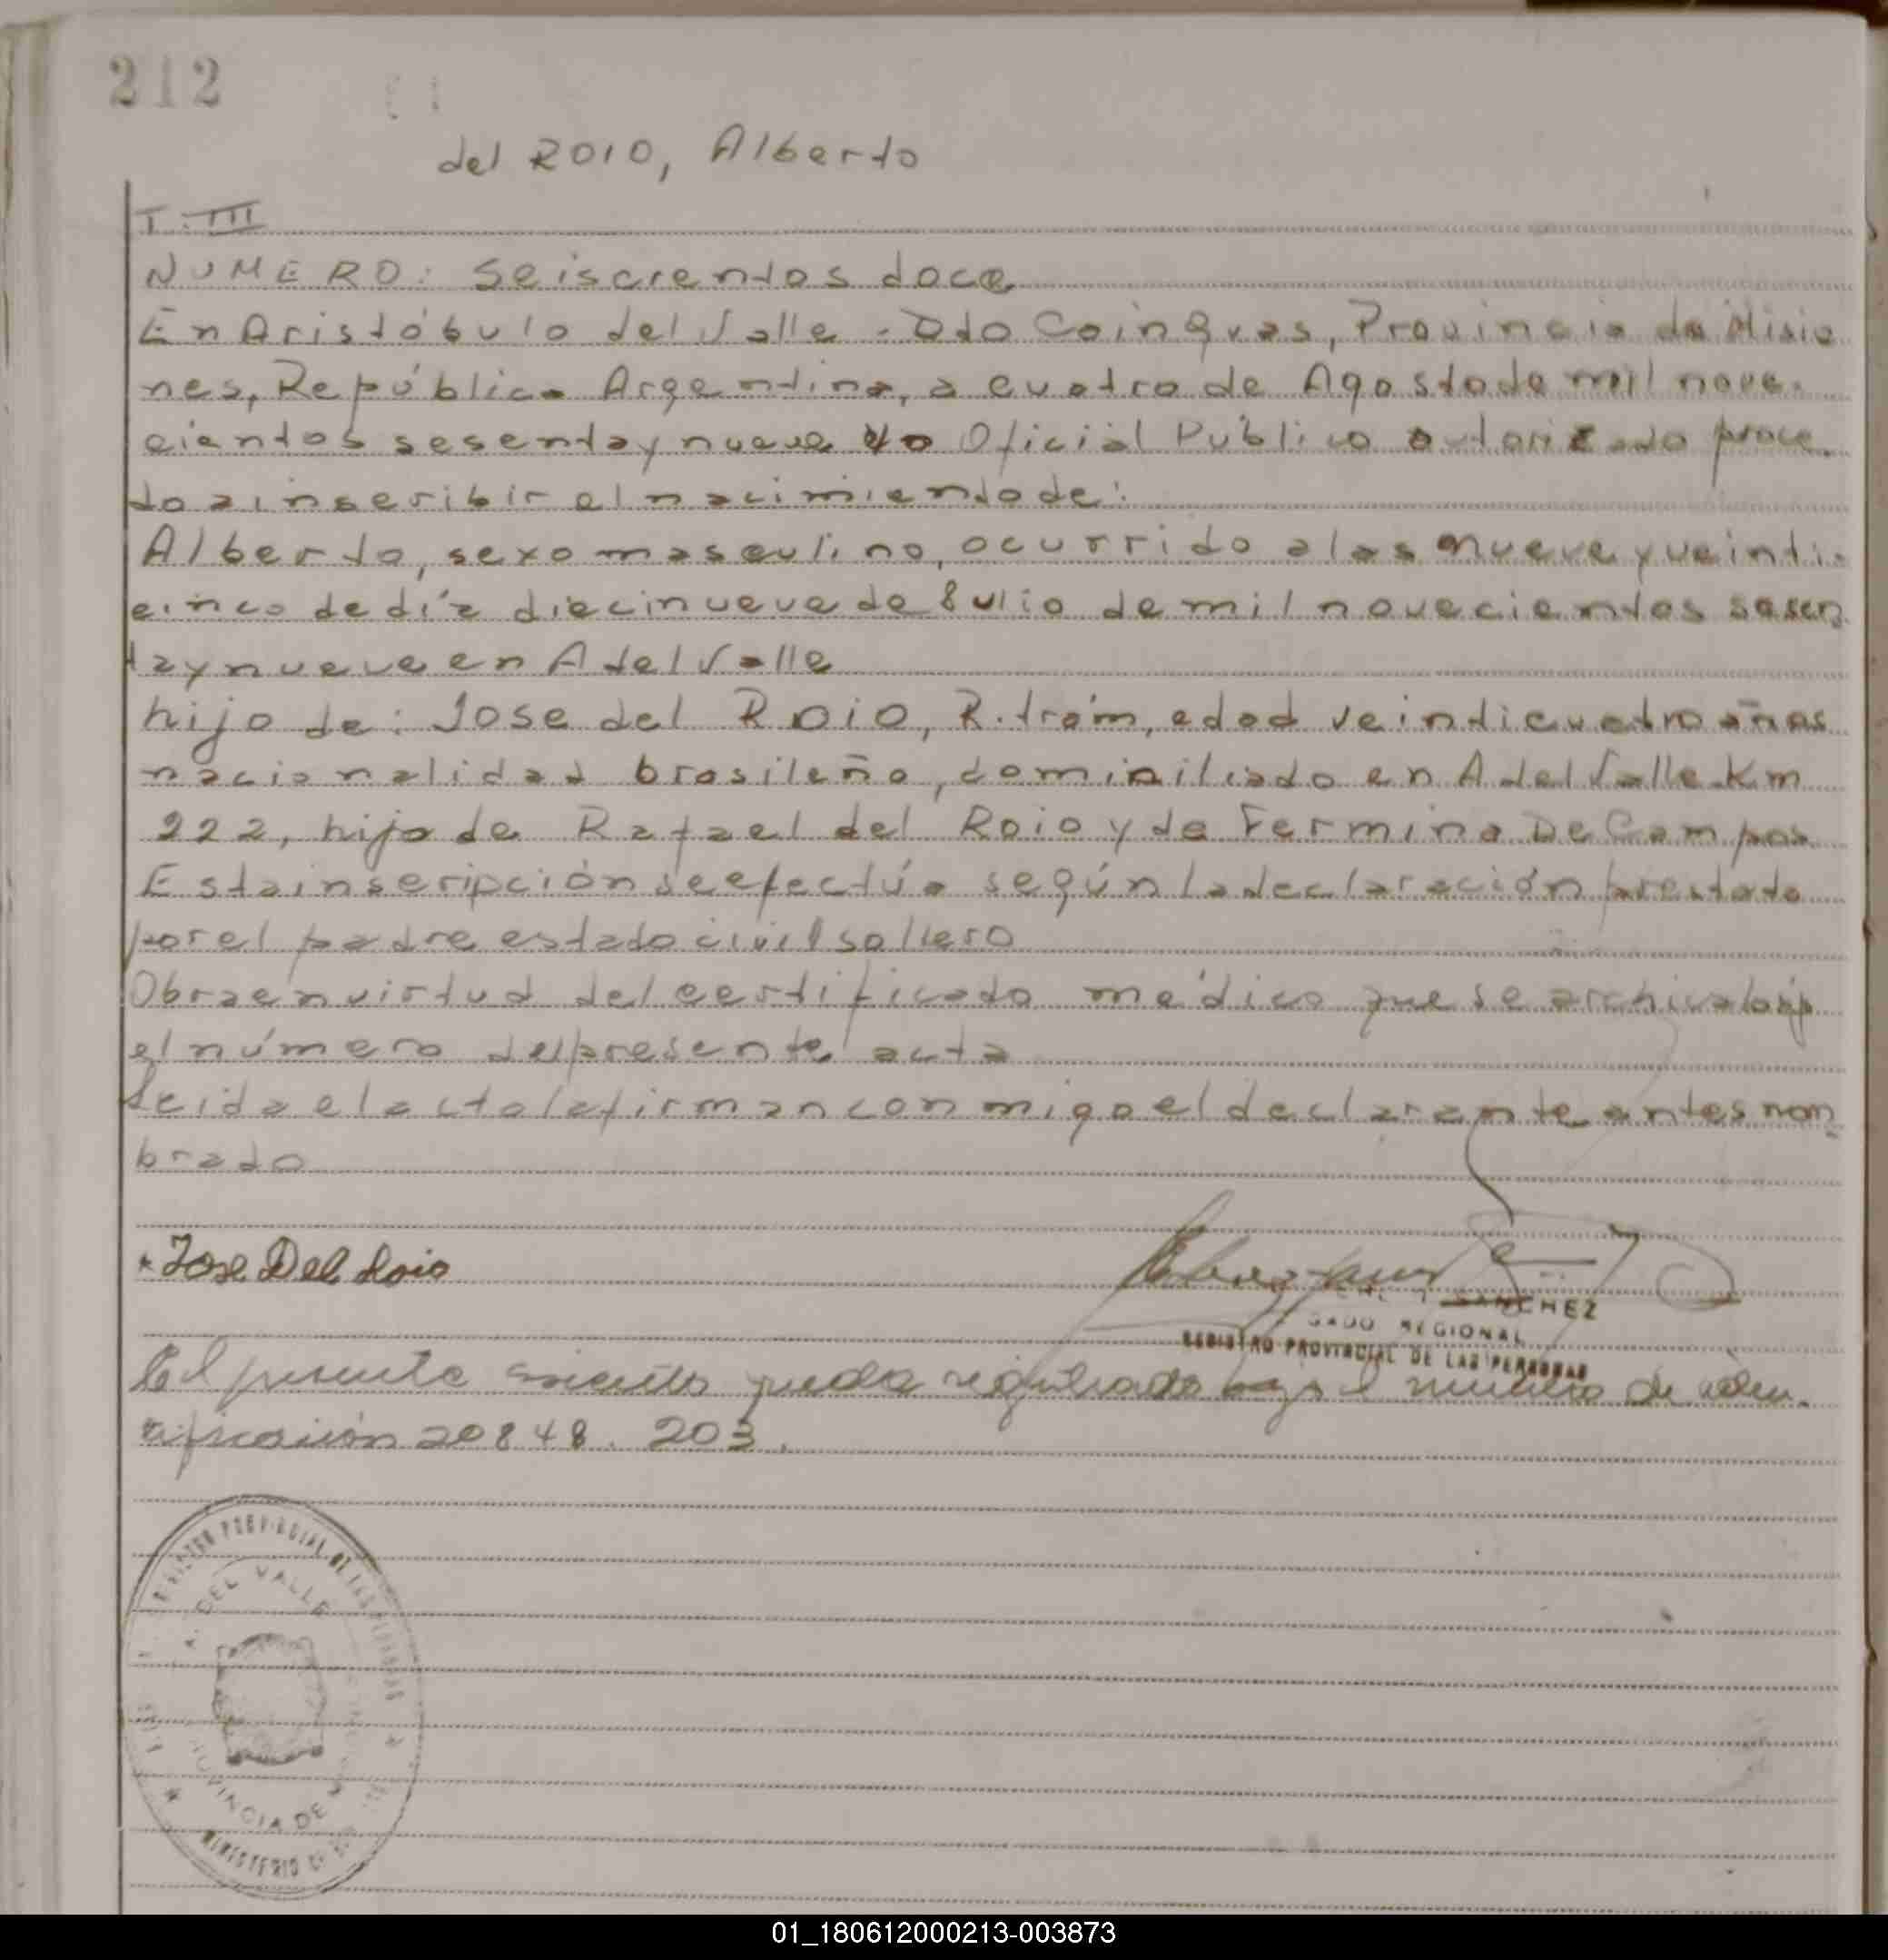 212
del ROIO, Alberto
T. III
NUMERO: Seiscientos doce
En Aristóbulo del Valle - Dto Cainguas, Provincia de Misio
nes, República Argentina, a cuatro de Agosto de mil nove-
cientos sesenta y nueve yo Oficial Público autorizado proce
do a inscribir el nacimiento de:
Alberto, sexo masculino, ocurrido a las nueve y veinti-
cinco de día diecinueve de Julio de mil novecientos sesen
ta y nueve en A del Valle
hijo de: Jose del Roio, R. trám, edad veinticuatro años
nacionalidad brasileña, dominiliado en A del Valle Km
222, hijo de Rafael del Roio y de Fermina De Campos
Esta inscripción se efectúa según la declaración prestada
por el padre estado civil soltero
Obra en virtud del certificado médico que se archiva bajo
el número del presente acta
Leida el acta la firman con migo el declarante antes nom
brado
Jose Del Roio
SANCHEZ
GADO REGIONAL
REGISTRO PROVINCIAL DE LAS PERSONAS
El presente asiento queda registrado bajo el numero de iden-
tificación 20848.203.
REGISTRO PROVINCIAL DE LAS PERSONAS
A. DEL VALLE
PROVINCIA DE
MINISTERIO DE
01_180612000213-003873